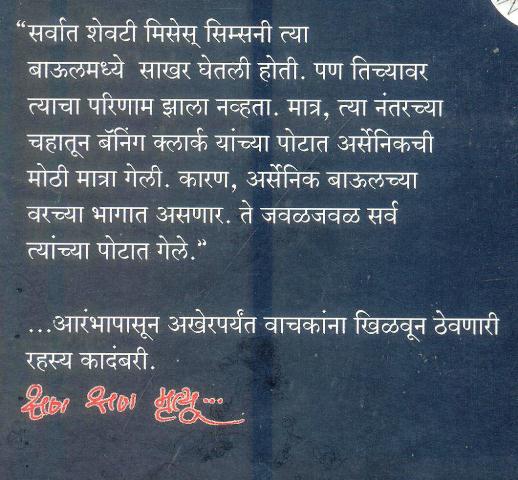 “सर्वात शेवटी मिसेस् सिम्सनी त्या
बाऊलमध्ये साखर घेतली होती. पण तिच्यावर
त्याचा परिणाम झाला नव्हता. मात्र, त्या नंतरच्या
चहातून बॅनिंग क्लार्क यांच्या पोटात अर्सेनिकची
मोठी मात्रा गेली. कारण, अर्सेनिक बाऊलच्या
वरच्या भागात असणार. ते जवळजवळ सर्व
त्यांच्या पोटात गेले.“
...आरंभापासून अखेरपर्यंत वाचकांना खिळवून ठेवणारी
रहस्य कादंबरी.
क्षण क्षण मृत्यू...